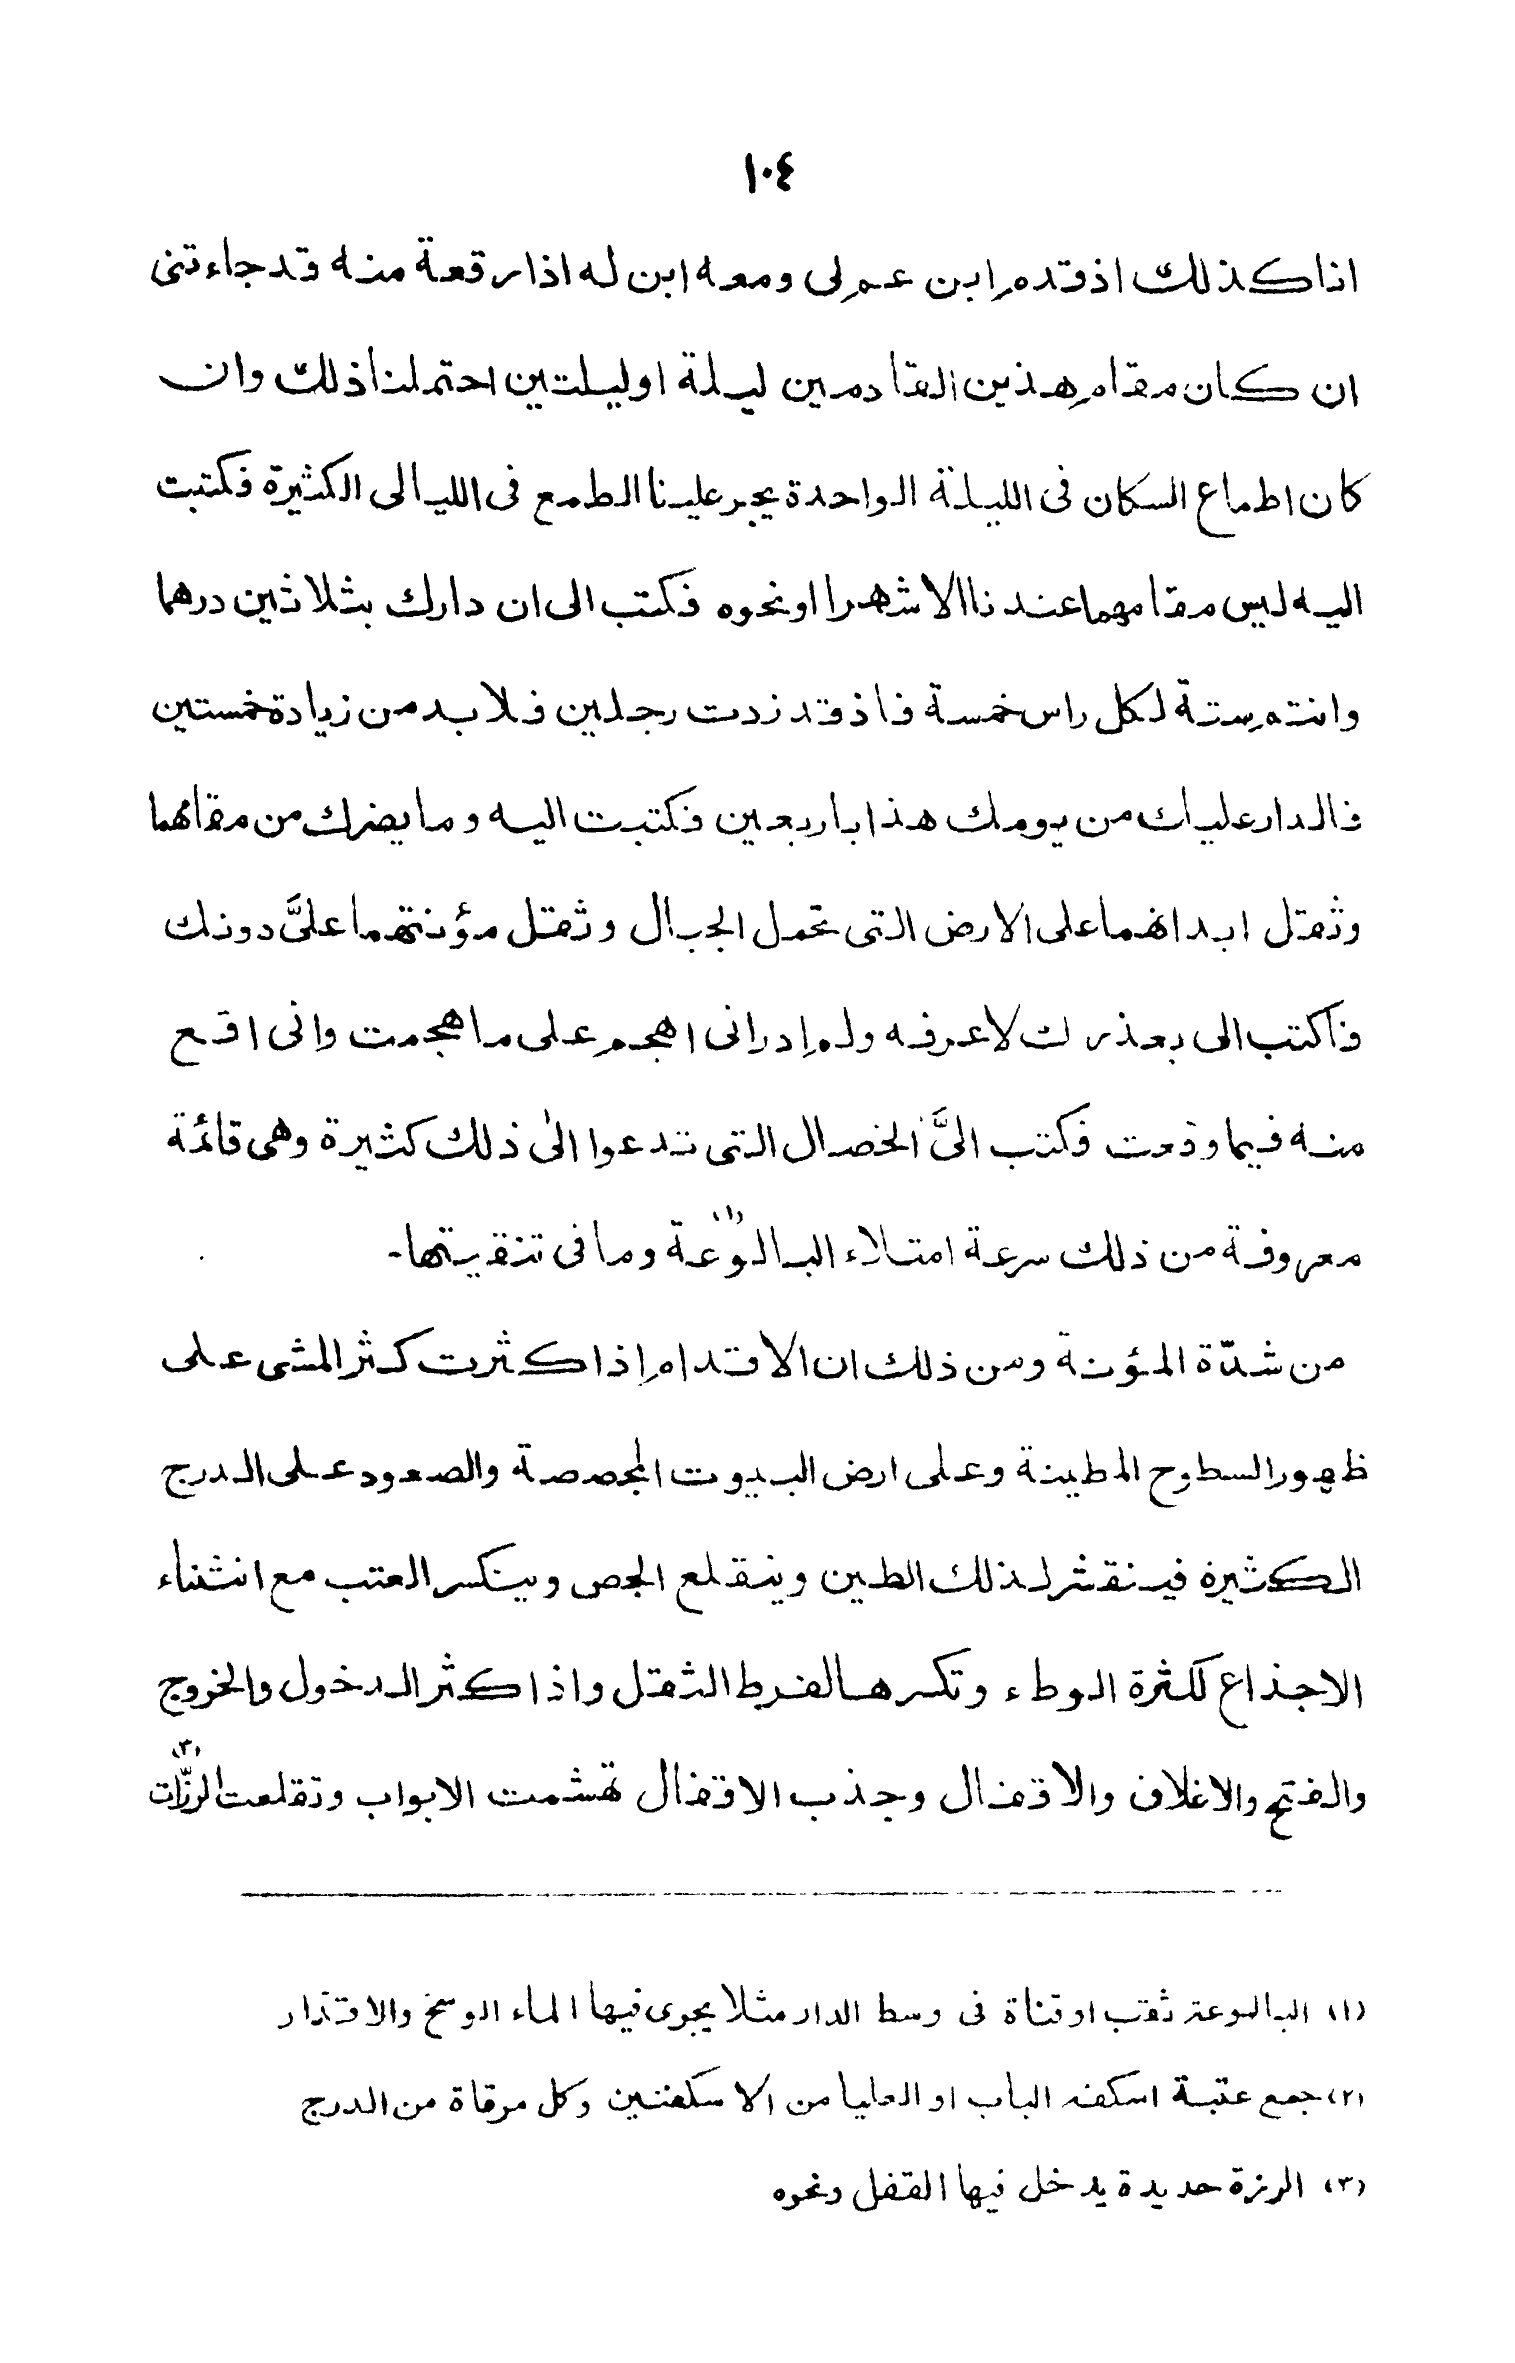 ١٠٤
انا كذلك اذ قدم ابن عم لى ومعه ابن له اذا رقعة منه قد جاءتنى
ان كان مقام هذين القادمين ليلة او ليلتين احتملنا ذلك وان
كان اطماع السكان فى الليلة الواحدة يجر علينا الطمع فى الليالى الكثيرة فكتبت
اليه ليس مقامهما عندنا الا شهرا او نحوه فكتب الى ان دارك بثلاثين درهما
وانتم ستة لكل راس خمسة فاذ قد زدت رجلين فلا بد من زيادة خمستين
فالدار عليك من يومك هذا باربعين فكتبت اليه وما يضرك من مقامهما
وثقل ابدانهما على الارض التى تحمل الجبال وثقل مؤنتهما علىَّ دونك
فاكتب الى بعذرك لاعرفه ولم ادر انى اهجم على ما هجمت وانى اقع
منه فيما وقعت فكتب الىَّ الخصال التى تدعوا الىٰ ذلك كثيرة وهى قائمة
معروفة من ذلك سرعة امتلاء البالوعة (١) وما فى تنقيتها-
من شدّة المؤنة ومن ذلك ان الاقدام اذا كثرت كثر المشى على
ظهور السطوح المطينة وعلى ارض البيوت المجصصة والصعود على الدرج
الكثيرة فينقشر لذلك الطين وينقلع الجص وينكسر العتب مع انثناء
الاجذاع لكثرة الوطء وتكسرها لفرط الثقل واذا كثر الدخول والخروج
والفتح والاغلاق والاقفال وجذب الاقفال تهشمت الابواب وتقلعت الرزّات (٣)
(١) البالوعة ثقب او قناة فى وسط الدار مثلا يجرى فيها الماء الوسخ والاقذار
(٢) جمع عتبة اسكفه الباب او العليا من الاسكفتين وكل مرقاة من الدرج
(٣) الرزة حديدة يدخل فيها القفل ونحوه